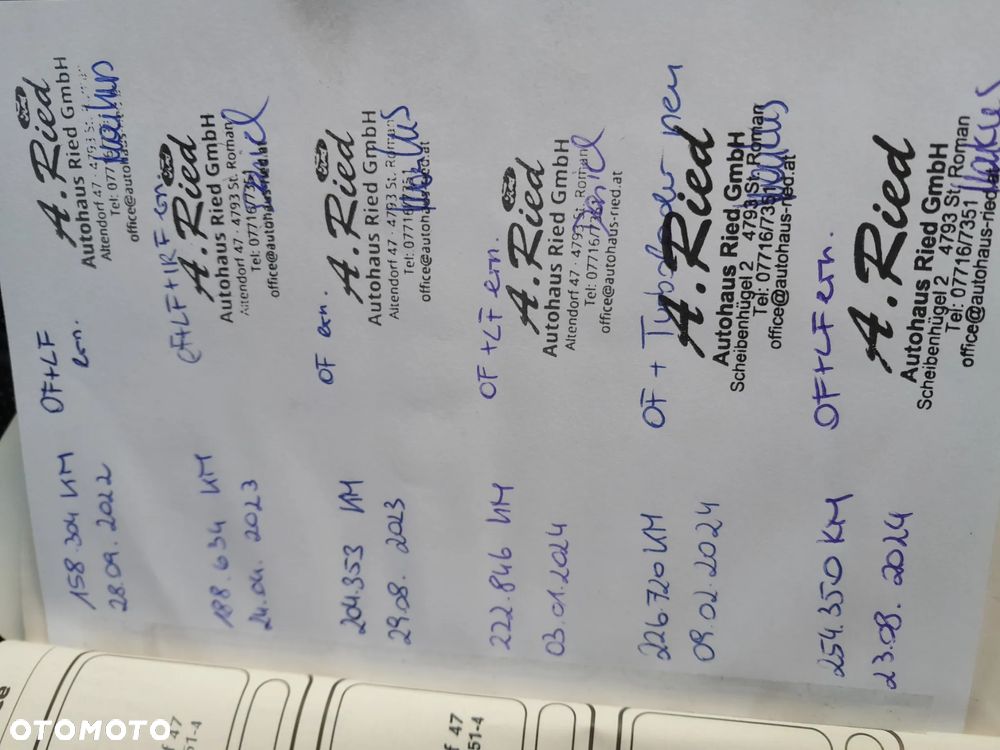 158.304 KM OF+LF
28.09.2022 ern.
Ford
A.Ried
Autohaus Ried GmbH
Altendorf 47 · 4793 St.
Tel: 0771
office@autohaus
Markus
188.634 KM OF+LF+IRF ern
24.04.2023
Ford
A.Ried
Autohaus Ried GmbH
Altendorf 47 · 4793 St. Roman
Tel: 07716/7351
office@autohaus
Daniel
204.353 KM OF ern.
29.08.2023
Ford
A.Ried
Autohaus Ried GmbH
Altendorf 47 · 4793 St. Roman
Tel: 07716/7351
office@autohaus-ried.at
Markus
222.846 KM OF+LF ern.
03.01.2024
Ford
A.Ried
Autohaus Ried GmbH
Altendorf 47 · 4793 St. Roman
Tel: 07716/7351
office@autohaus-ried.at
Daniel
226.720 KM OF + Turbolader neu
09.02.2024
A.Ried
Autohaus Ried GmbH
Scheibenhügel 2 4793 St. Roman
Tel: 07716/7351
office@autohaus-ried.at
Markus
254.350 KM OF+LF ern.
23.08.2024
A.Ried
Autohaus Ried GmbH
Scheibenhügel 2 4793 St. Roman
Tel: 07716/7351
office@autohaus-ried.a
Markus
f 47
51-4
f 47
51-4
OTOMOTO